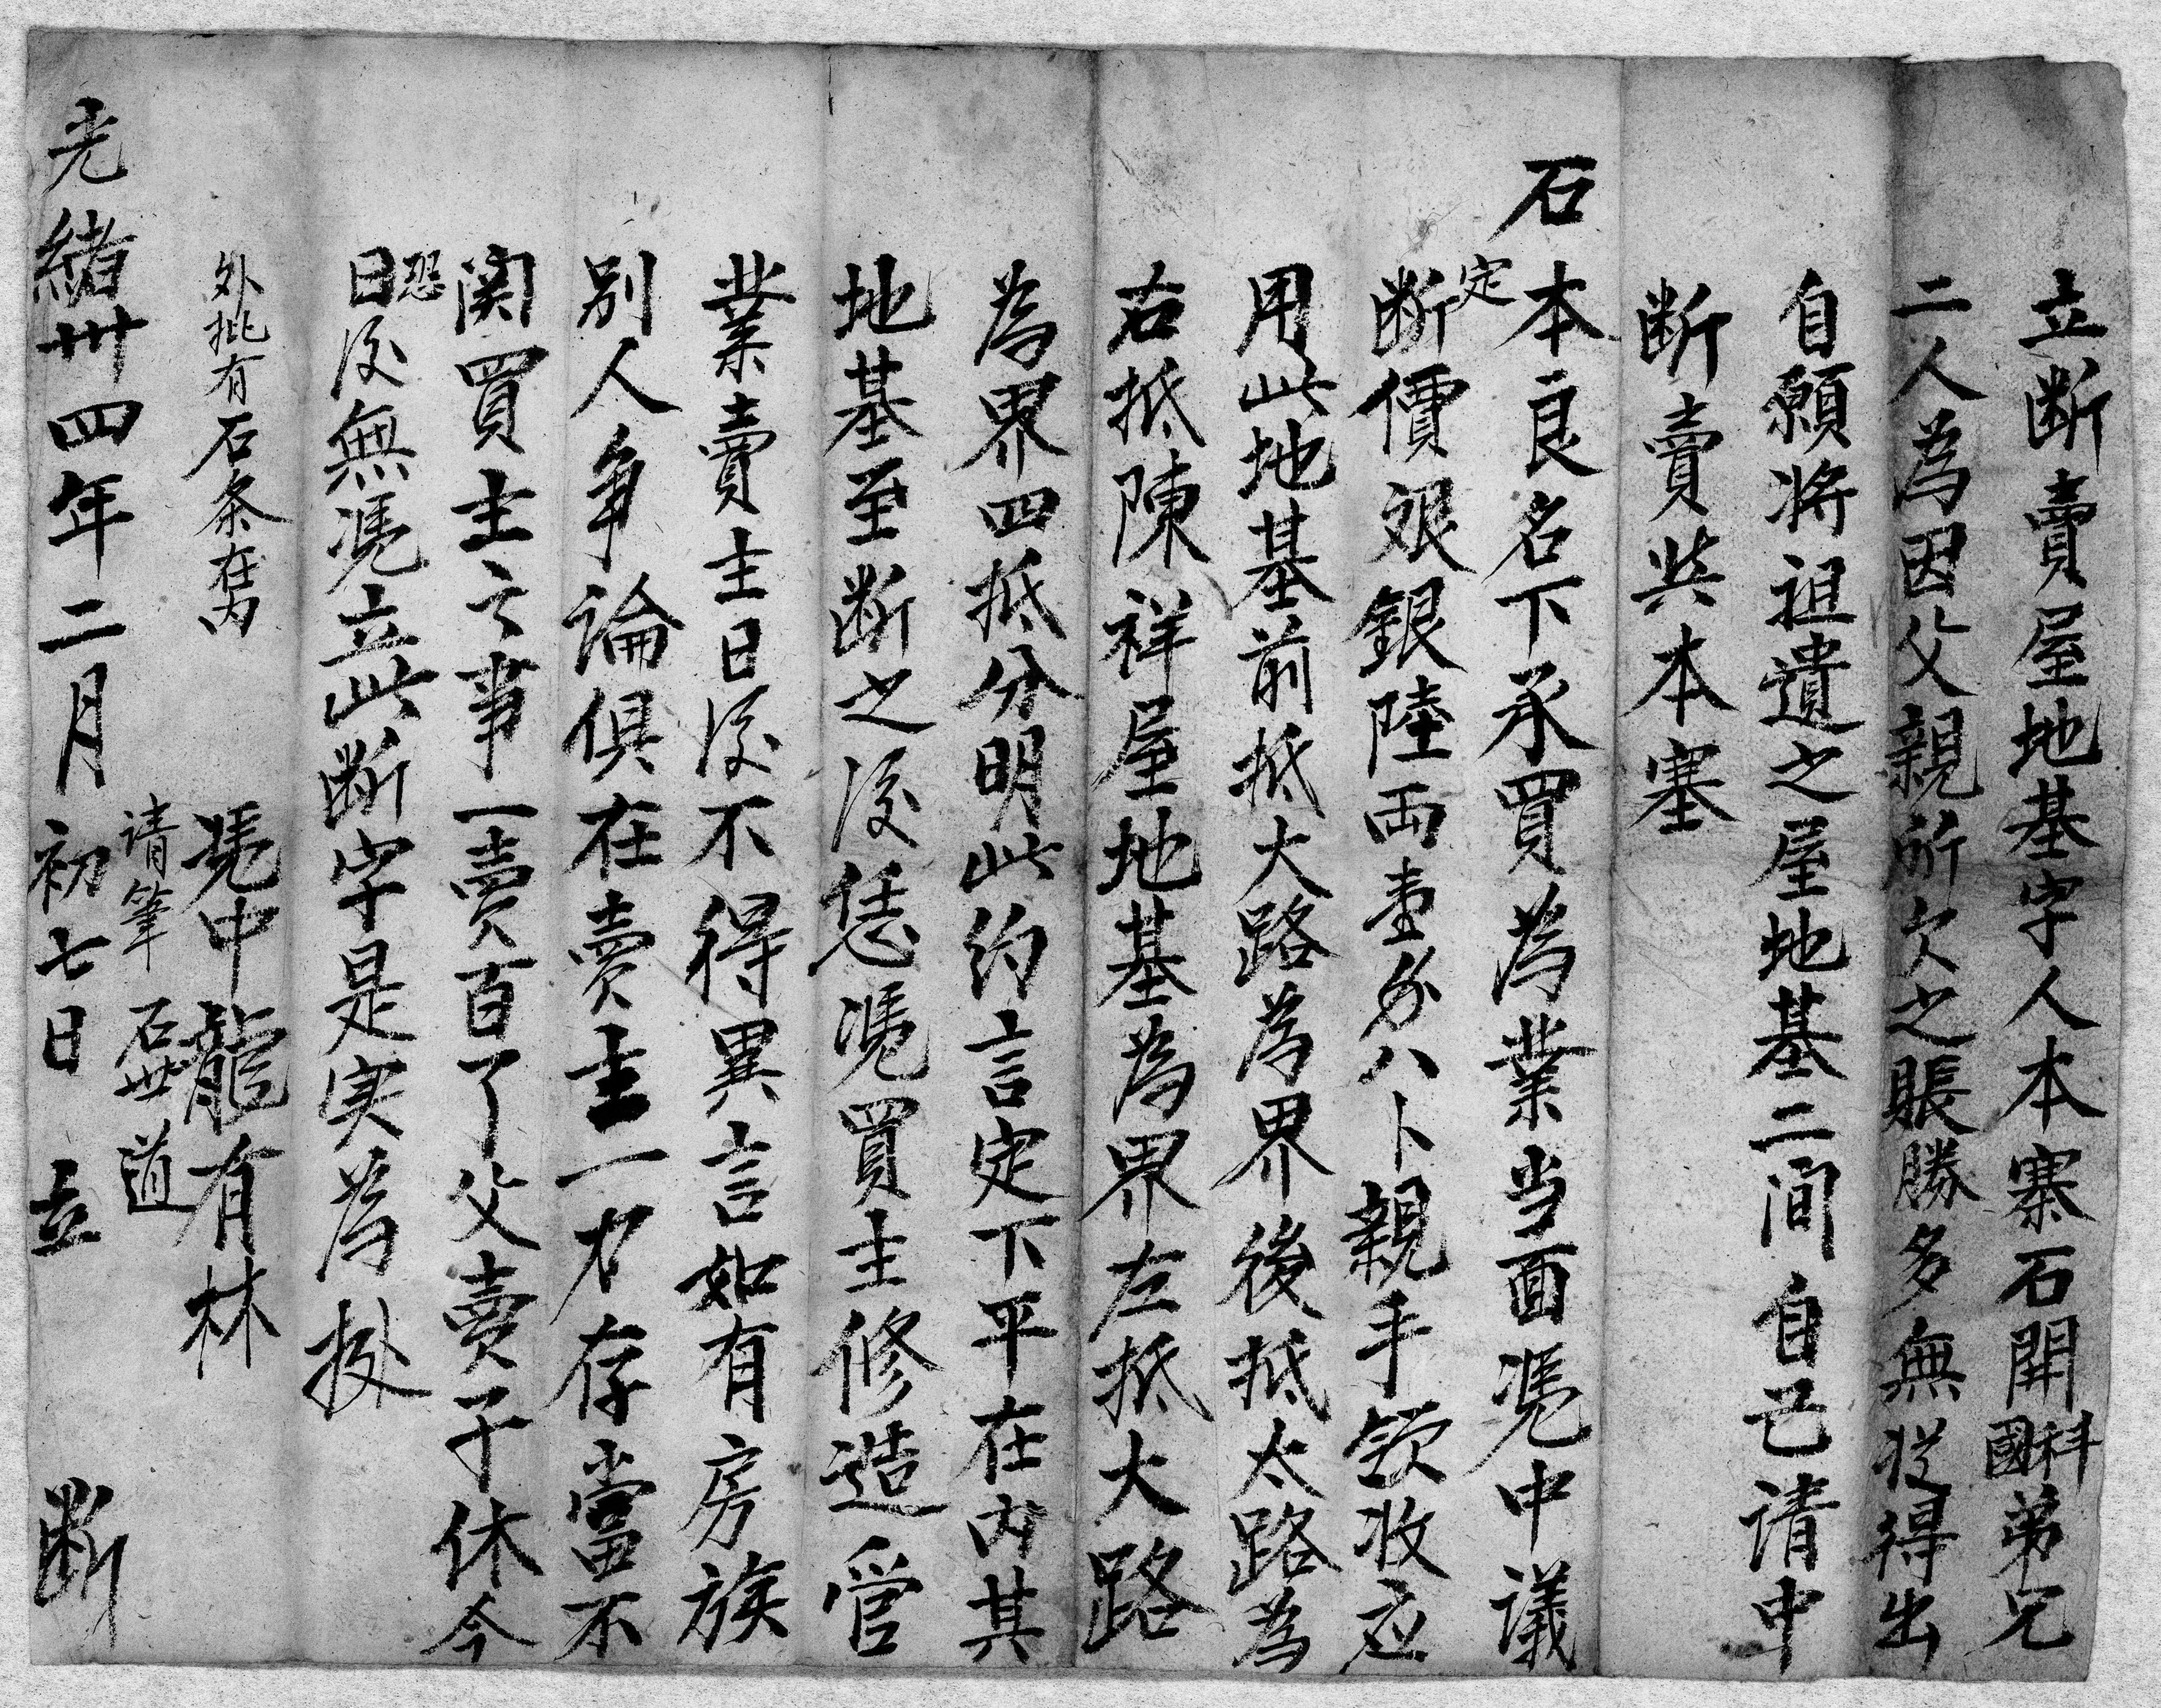 立断賣屋地基字人本寨石開科國弟兄
二人為因父親所欠之賬勝多無從得出
自願将祖遺之屋地基二间自己请中
断賣與本塞
石本良名下承買為業当面凴中議
定断價艮銀陸両壹分八卜親手領收应
用此地基前抵大路為界後抵太路為
右抵陳祥屋地基為界左抵大路
為界四抵分明此約言定下平在内其
地基至断之後恁凴買主修造管
業賣主日後不得異言如有房族
别人争論俱在賣主一力存當不
関買主之事一賣百了父賣子休今
恐日後無凴立此断字是实為据
外批有石条在内
凴中龍有林
请筆 石世道
光緒卅四年二月初七日 立 断